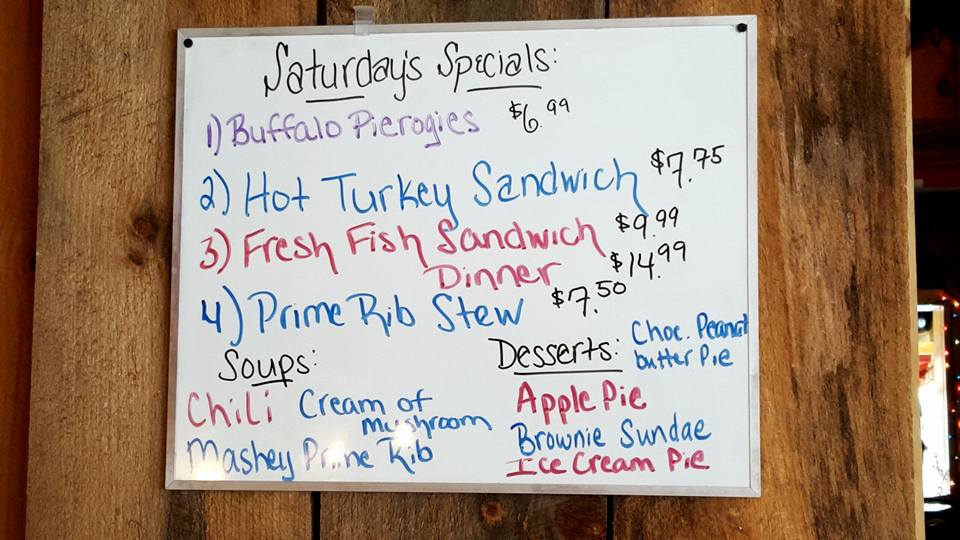 Saturday's Specials:
1) Buffalo Pierogies $6.99
2) Hot Turkey Sandwich $7.75
3) Fresh Fish Sandwich $9.99
Dinner $14.99
4) Prime Rib Stew $7.50
Soups:
Chili Cream of
mushroom
Mashey Prime Rib
Desserts: Choc. Peanut
butter Pie
Apple Pie
Brownie Sundae
Ice Cream Pie